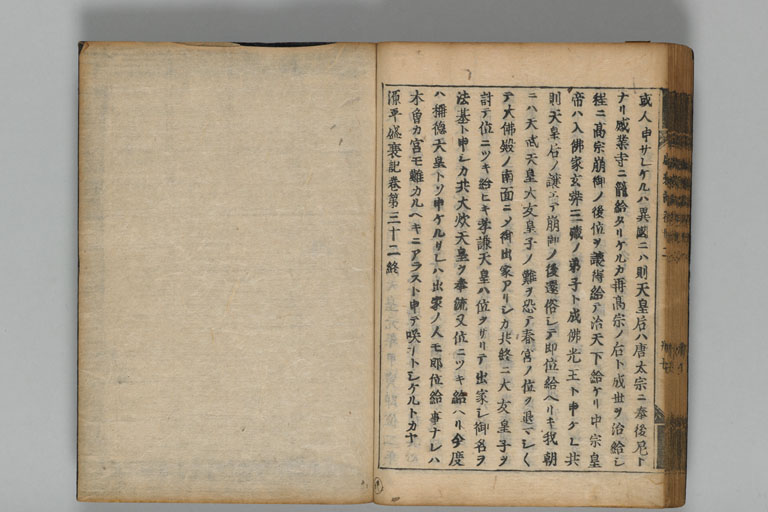 或人申サレケルハ異國ニハ則天皇后ハ唐太宗ニ奉後尼ト
ナリ感業寺ニ籠給タリケルカ再高宗ノ后ト成世ヲ治給シ
程ニ高宗崩御ノ後位ヲ讓得給テ治天下給ケリ中宗皇
帝ハ入佛家玄弉三藏ノ弟子ト成佛光王ト申ケレ共
則天皇后ノ讓ニテ崩御ノ後還俗シテ即位給ヘリキ我朝
ニハ天武天皇大友皇子ノ難ヲ恐テ春宮ノ位ヲ退マシ〱
テ大佛殿ノ南面ニシテ御出家アリシカ共終ニ大友皇子ヲ
討テ位ニツキ給ヒキ孝謙天皇ハ位ヲサリテ出家シ御名ヲ
法基ト申シカ共大炊天皇ヲ奉流又位ニツキ給ヘリ今度
ハ稱德天皇トソ申ケルサレハ出家ノ人モ即位給事ナレハ
木曽カ宮モ難カルヘキニアラスト申テ咲ケルトカヤ
源平盛衰記巻第三十二終